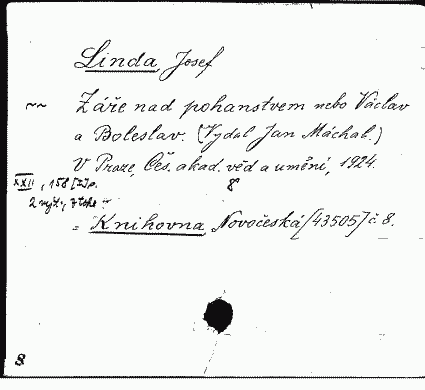 Linda, Josef
~~ Záře nad pohanstvem nebo Václav
a Boleslav. (Vydal Jan Máchal.)
V Praze, Čes. akad. věd a umění, 1924.
XXII, 158 [2] p. 8
= Knihovna Novočeská [43505] č. 8.
8